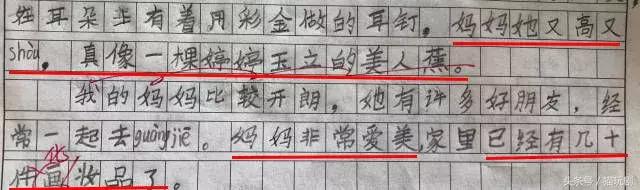 在耳朵上有着用彩金做的耳钉。妈妈她又高又
shòu。真像一棵婷婷玉立的美人蕉。
我的妈妈比较开朗，她有许多好朋友，经
常一起去guàngjiē。妈妈非常爱美，家里已经有几十
化
件画妆品了。
头条号/猫玩剧